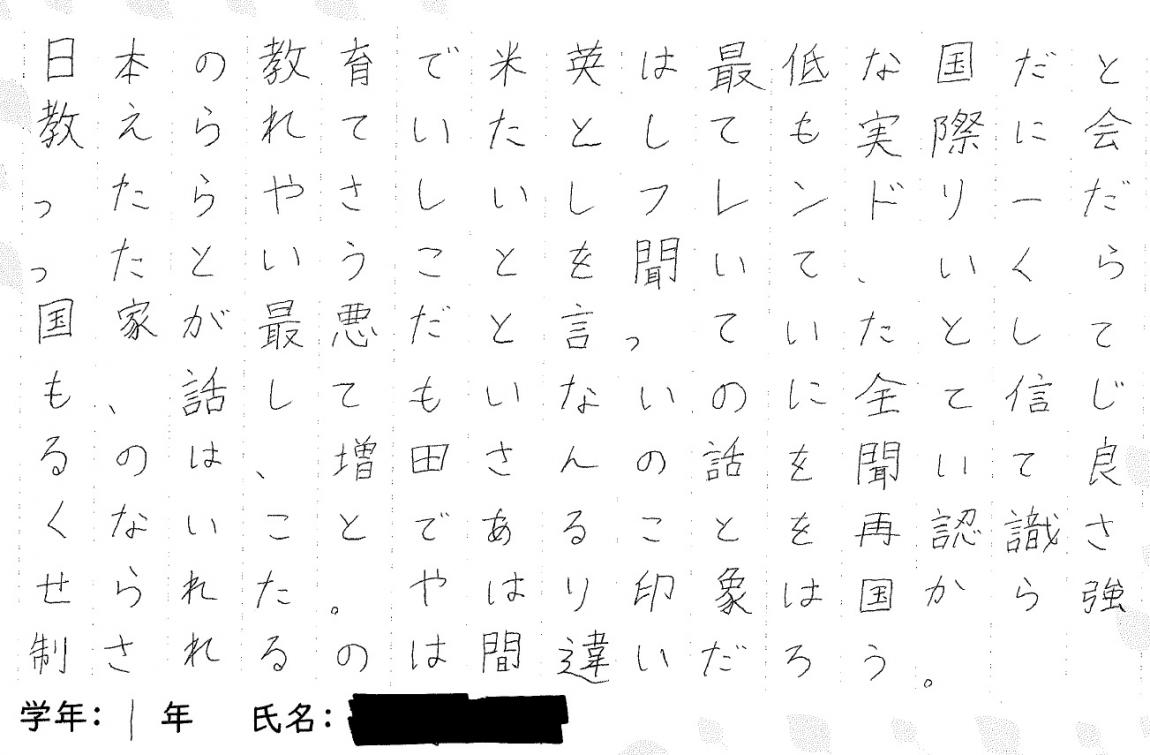 日本の教育で米英は最低な国だと
教えられていたとしても実際に会
ったらやさしいしフレンドリーだ
ったということを聞いて、いくら
国家が最悪だと言っていたとして
も、話してもいないのに全て信じ
るのは、増田さんの話を聞いて良
くないことであることを再認識さ
せられた。やはり印象は国から強
制されるのは間違いだろう。
学年：1年　氏名：